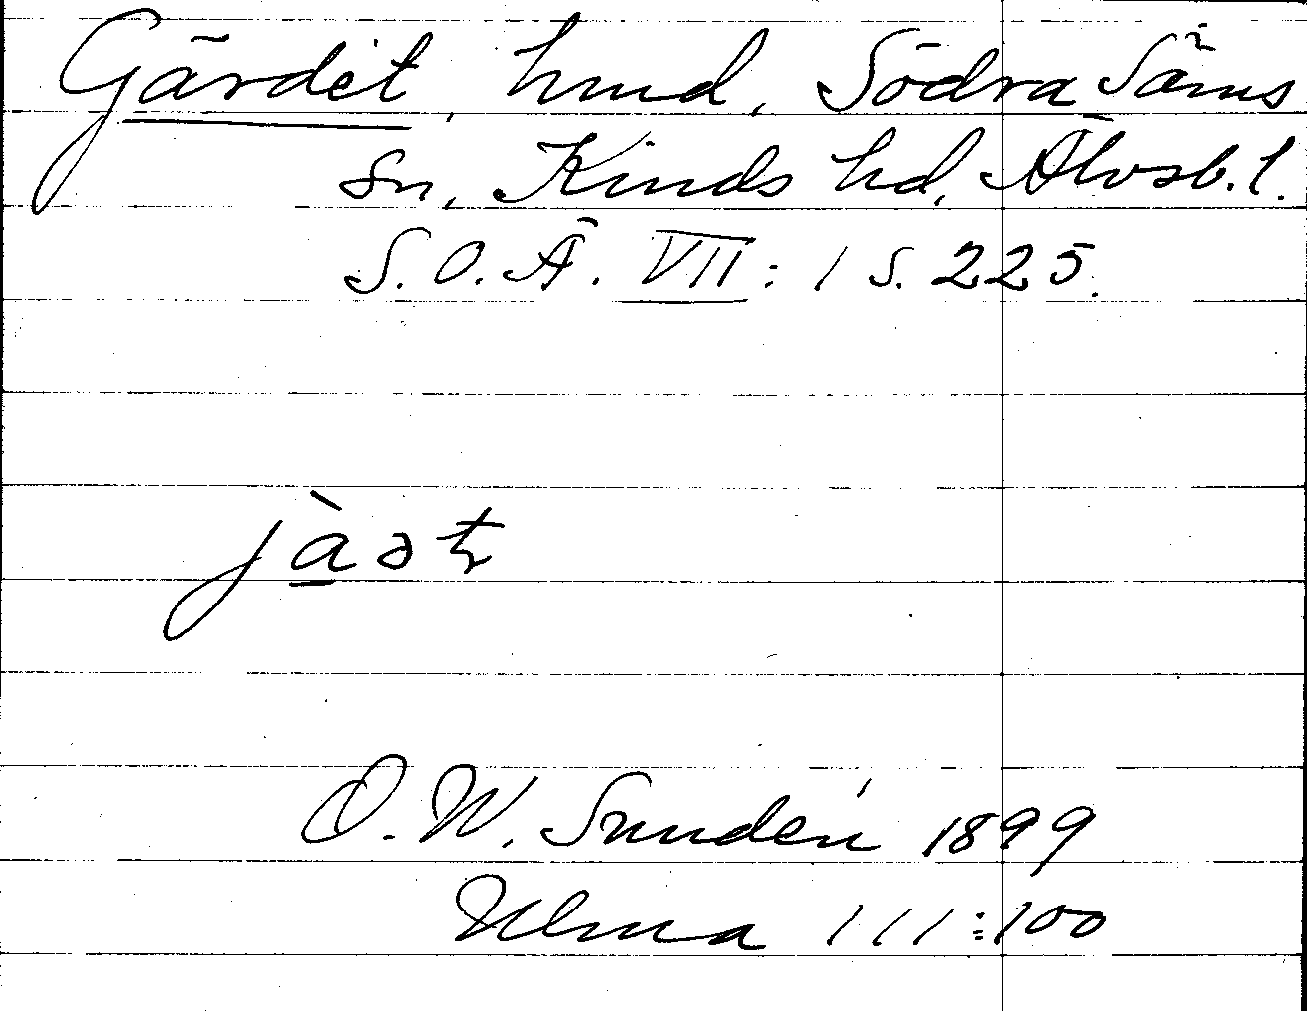 Gärdet, hmd, Södra Säms
sn, Kinds hd, Älvsb. l.
S. O. Ä. VII : 1 s. 225.
jàət
O. W. Sundén 1899
Ulma 111:100